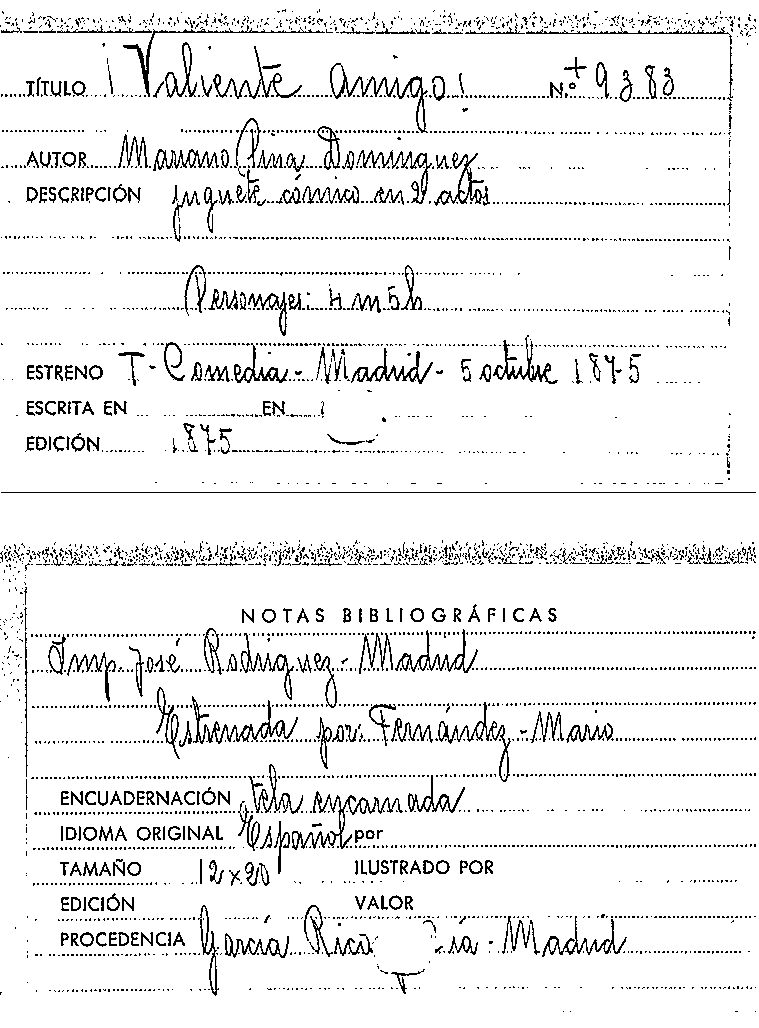 TÍTULO ¡Valiente amigo! N.º + 9383
AUTOR Mariano Pina Dominguez
DESCRIPCIÓN juguete cómico en 2 actos
Personajes: 4 m 5 h
ESTRENO T - Comedia - Madrid - 5 octubre 1875
ESCRITA EN EN
EDICIÓN 1875
NOTAS BIBLIOGRÁFICAS
Imp. José Rodriguez - Madrid
Estrenada por: Fernández - Mario
ENCUADERNACIÓN tela encarnada
IDIOMA ORIGINAL Español por
TAMAÑO 12x20 ILUSTRADO POR
EDICIÓN VALOR
PROCEDENCIA García Rico Madrid